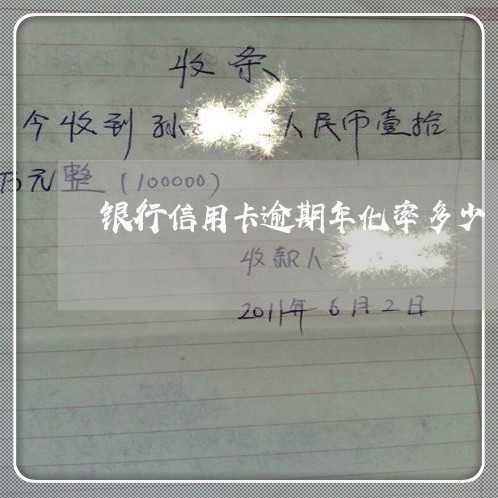 收条
今收到孙 人民币壹拾
万元整（100000）
银行信用卡逾期年化率多少
收款人
2011年6月2日